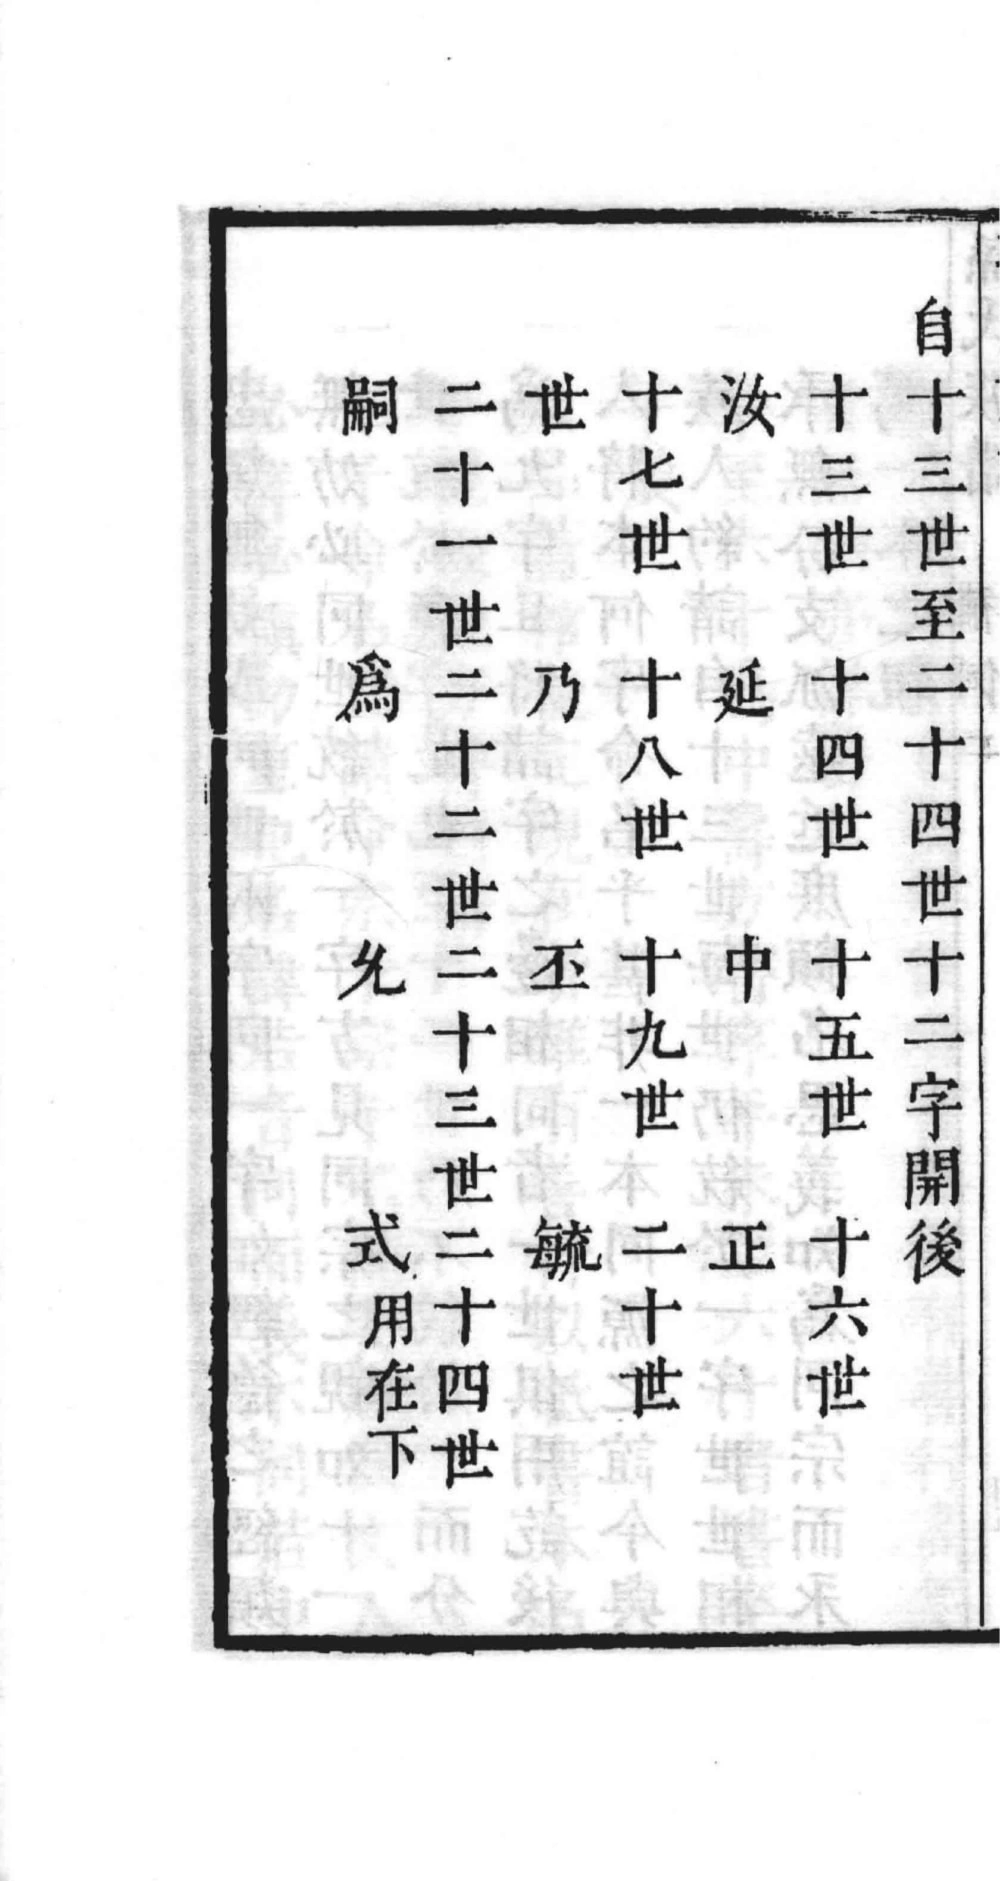 自十三世至二十四世十二字開後
十三世 十四世 十五世 十六世
汝 延 中 正
十七世 十八世 十九世 二十世
世 乃 丕 毓
二十一世二十二世二十三世二十四世
嗣 爲 允 式用在下